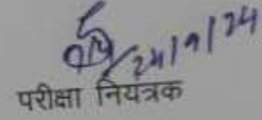 24/9/24
परीक्षा नियत्रक